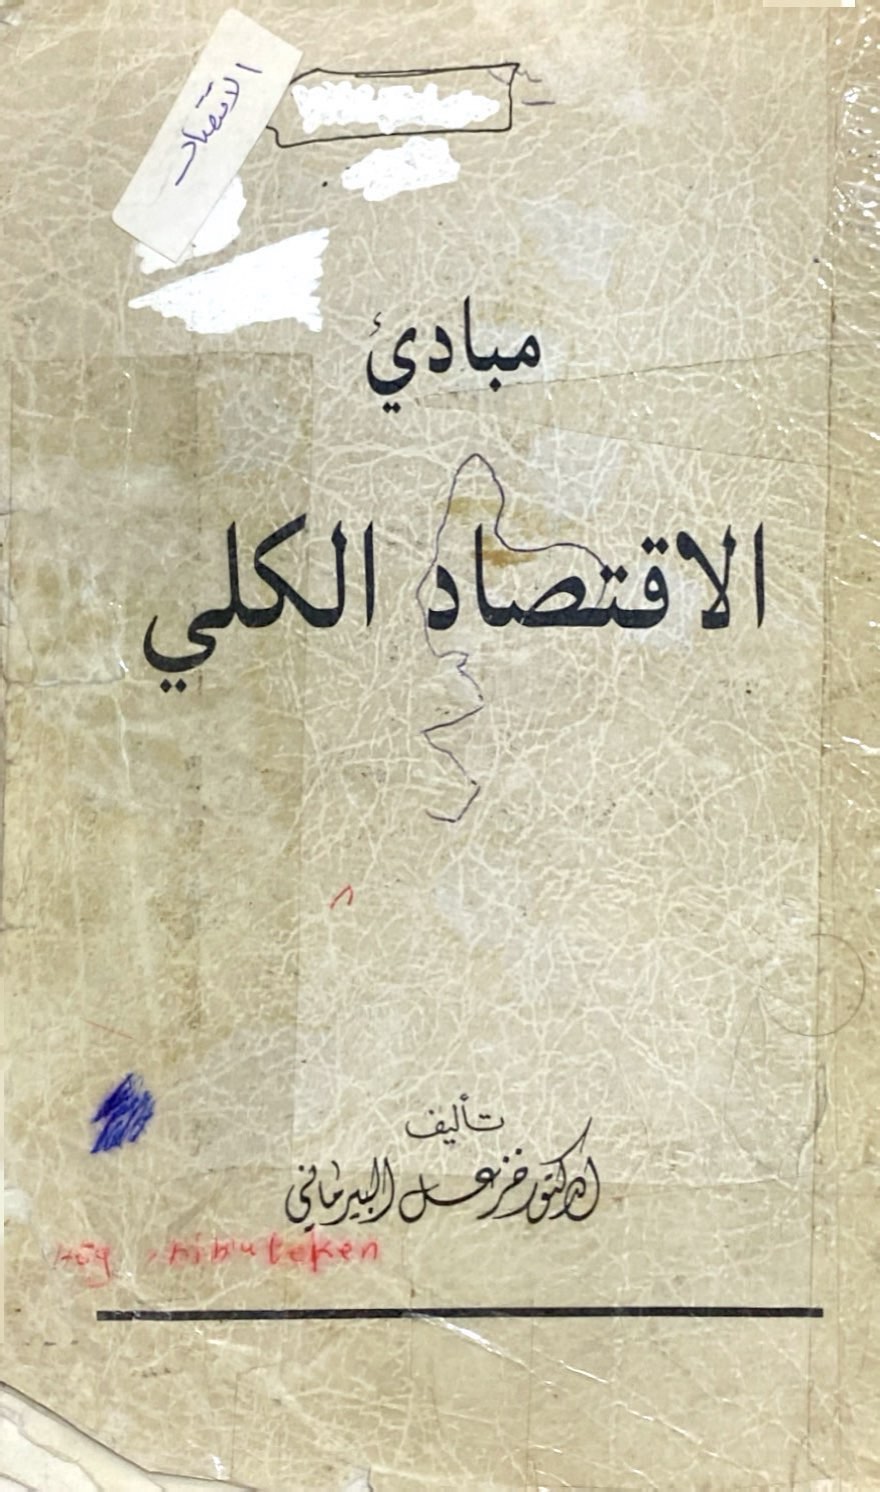 الاقتصاد
مبادئ
الاقتصاد الكلي
تأليف
الدكتور خزعل البيرماني